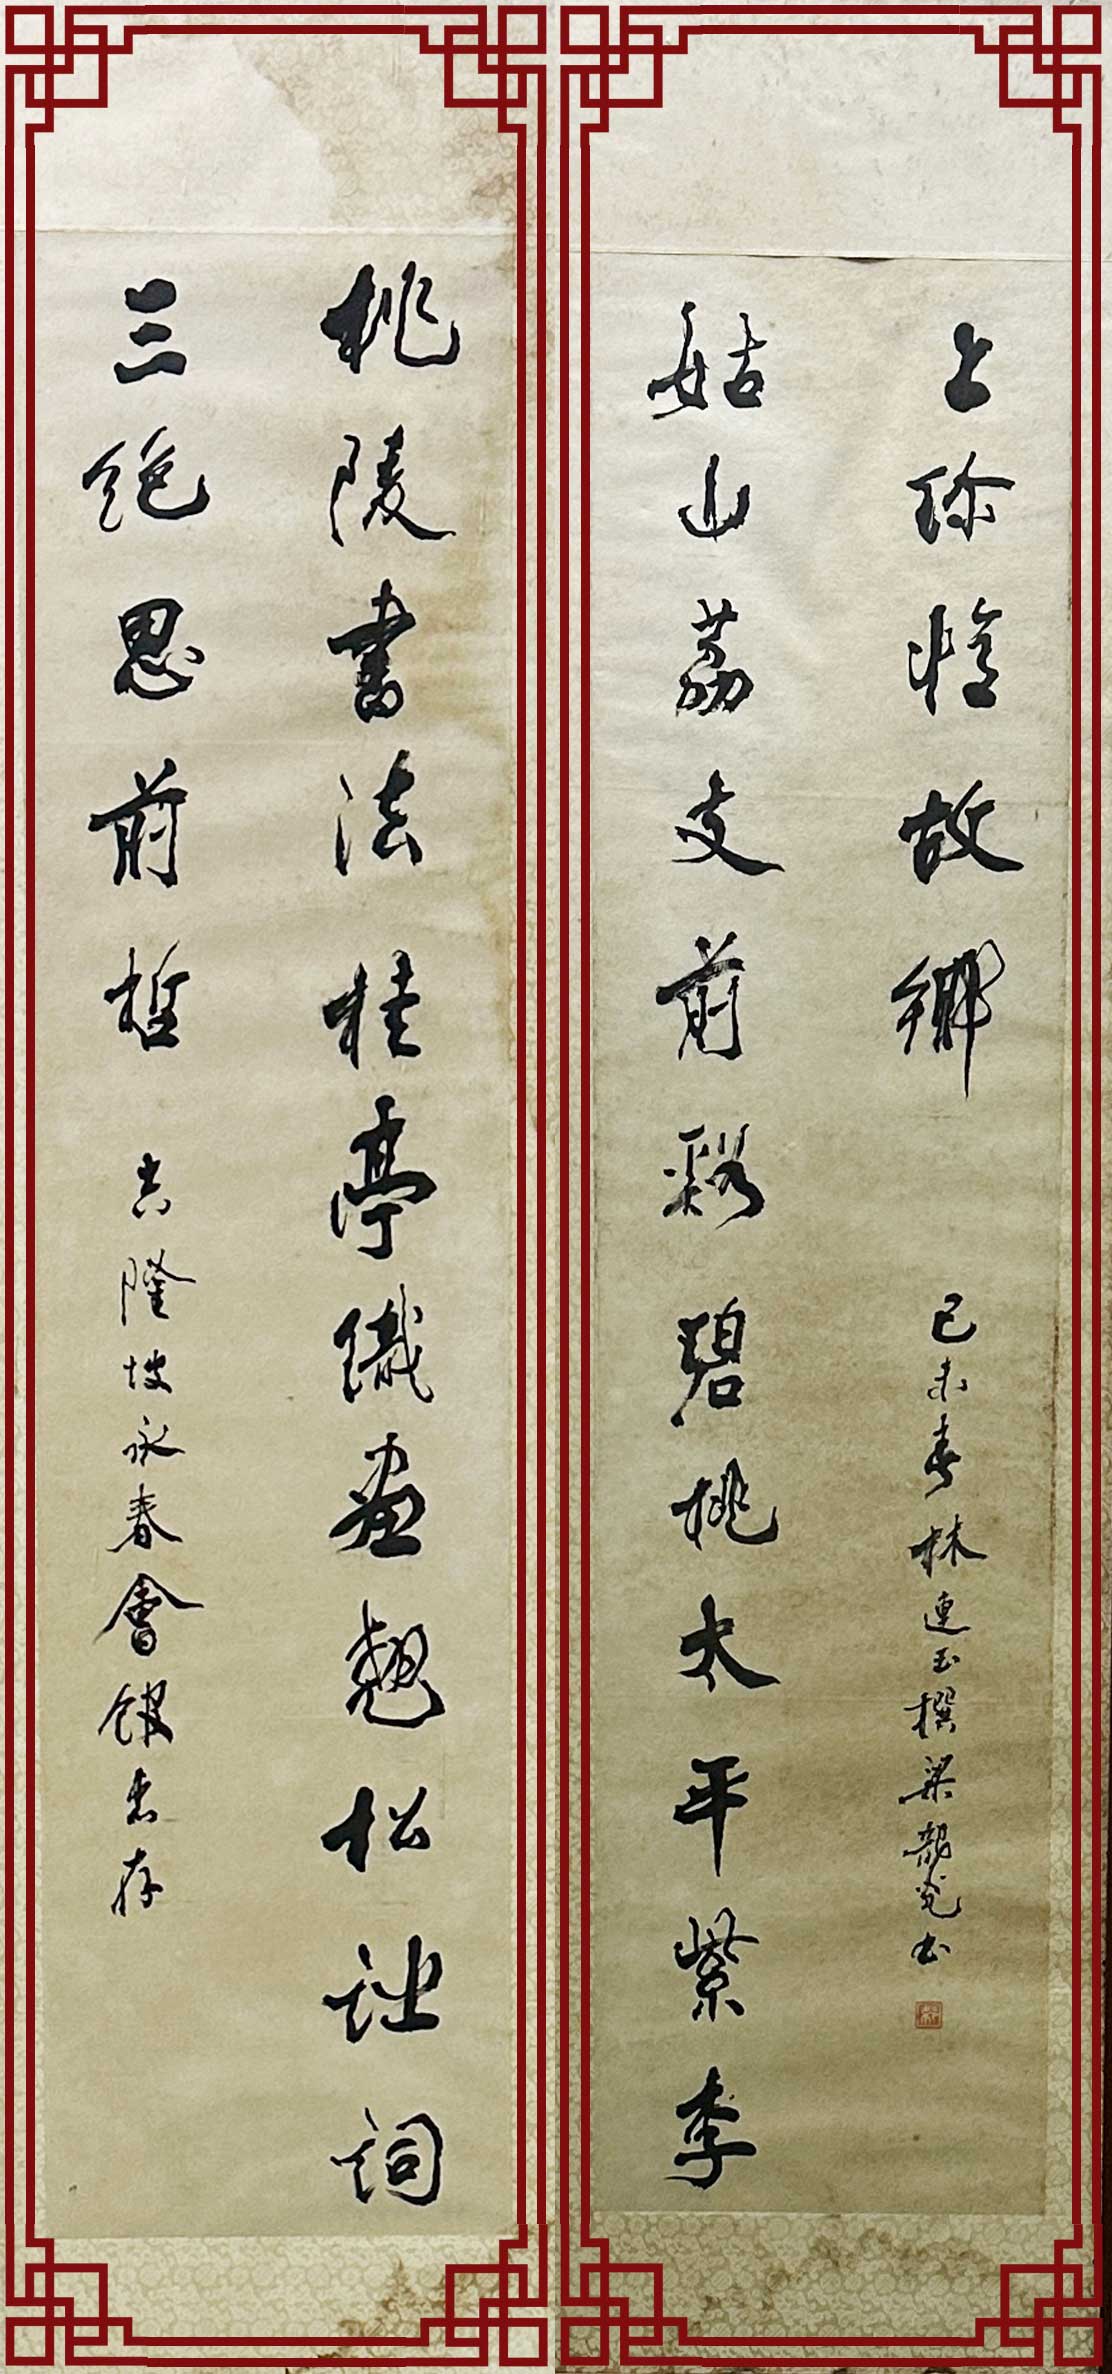 桃陵書法桂亭鐵畫翹松詩詞
三絶思前哲
吉隆坡永春會館惠存
姑山荔支前谿碧桃太平紫李
上珍憶故鄉
己未春林連玉撰梁龍光書